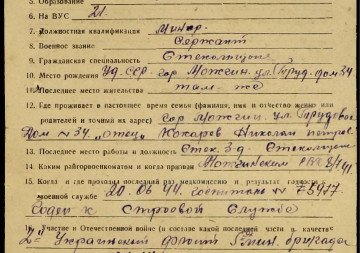 5. Образование
6. На ВУС 21.
7. Должностная квалификация Минер.
8. Военное звание Сержант
9. Гражданская специальность Стекольщик
10. Место рождения Уд. ССР. гор. Можгин. ул. Труд. дом 34
11. Последнее место жительства там-же
12. Где проживает в настоящее время семья (фамилия, имя и отчество жены или
родителей и точный их адрес) гор. Можгин. ул. Трудовая
дом №34, отец Кокарев Николай Петров.
13. Последнее место работы и должность Стек. З-д. Стекольщик
14. Каким райгорвоенкоматом и когда призван Можгинским РВК
15. Когда и где проходил последний раз медкомиссию и результат годности к
военной службе 20.06.44. госпиталь №
годен к строевой службе
16. Участие в Отечественной войне (в составе какой последней части и в качестве
2й Украинский фронт 5 мин. бригада